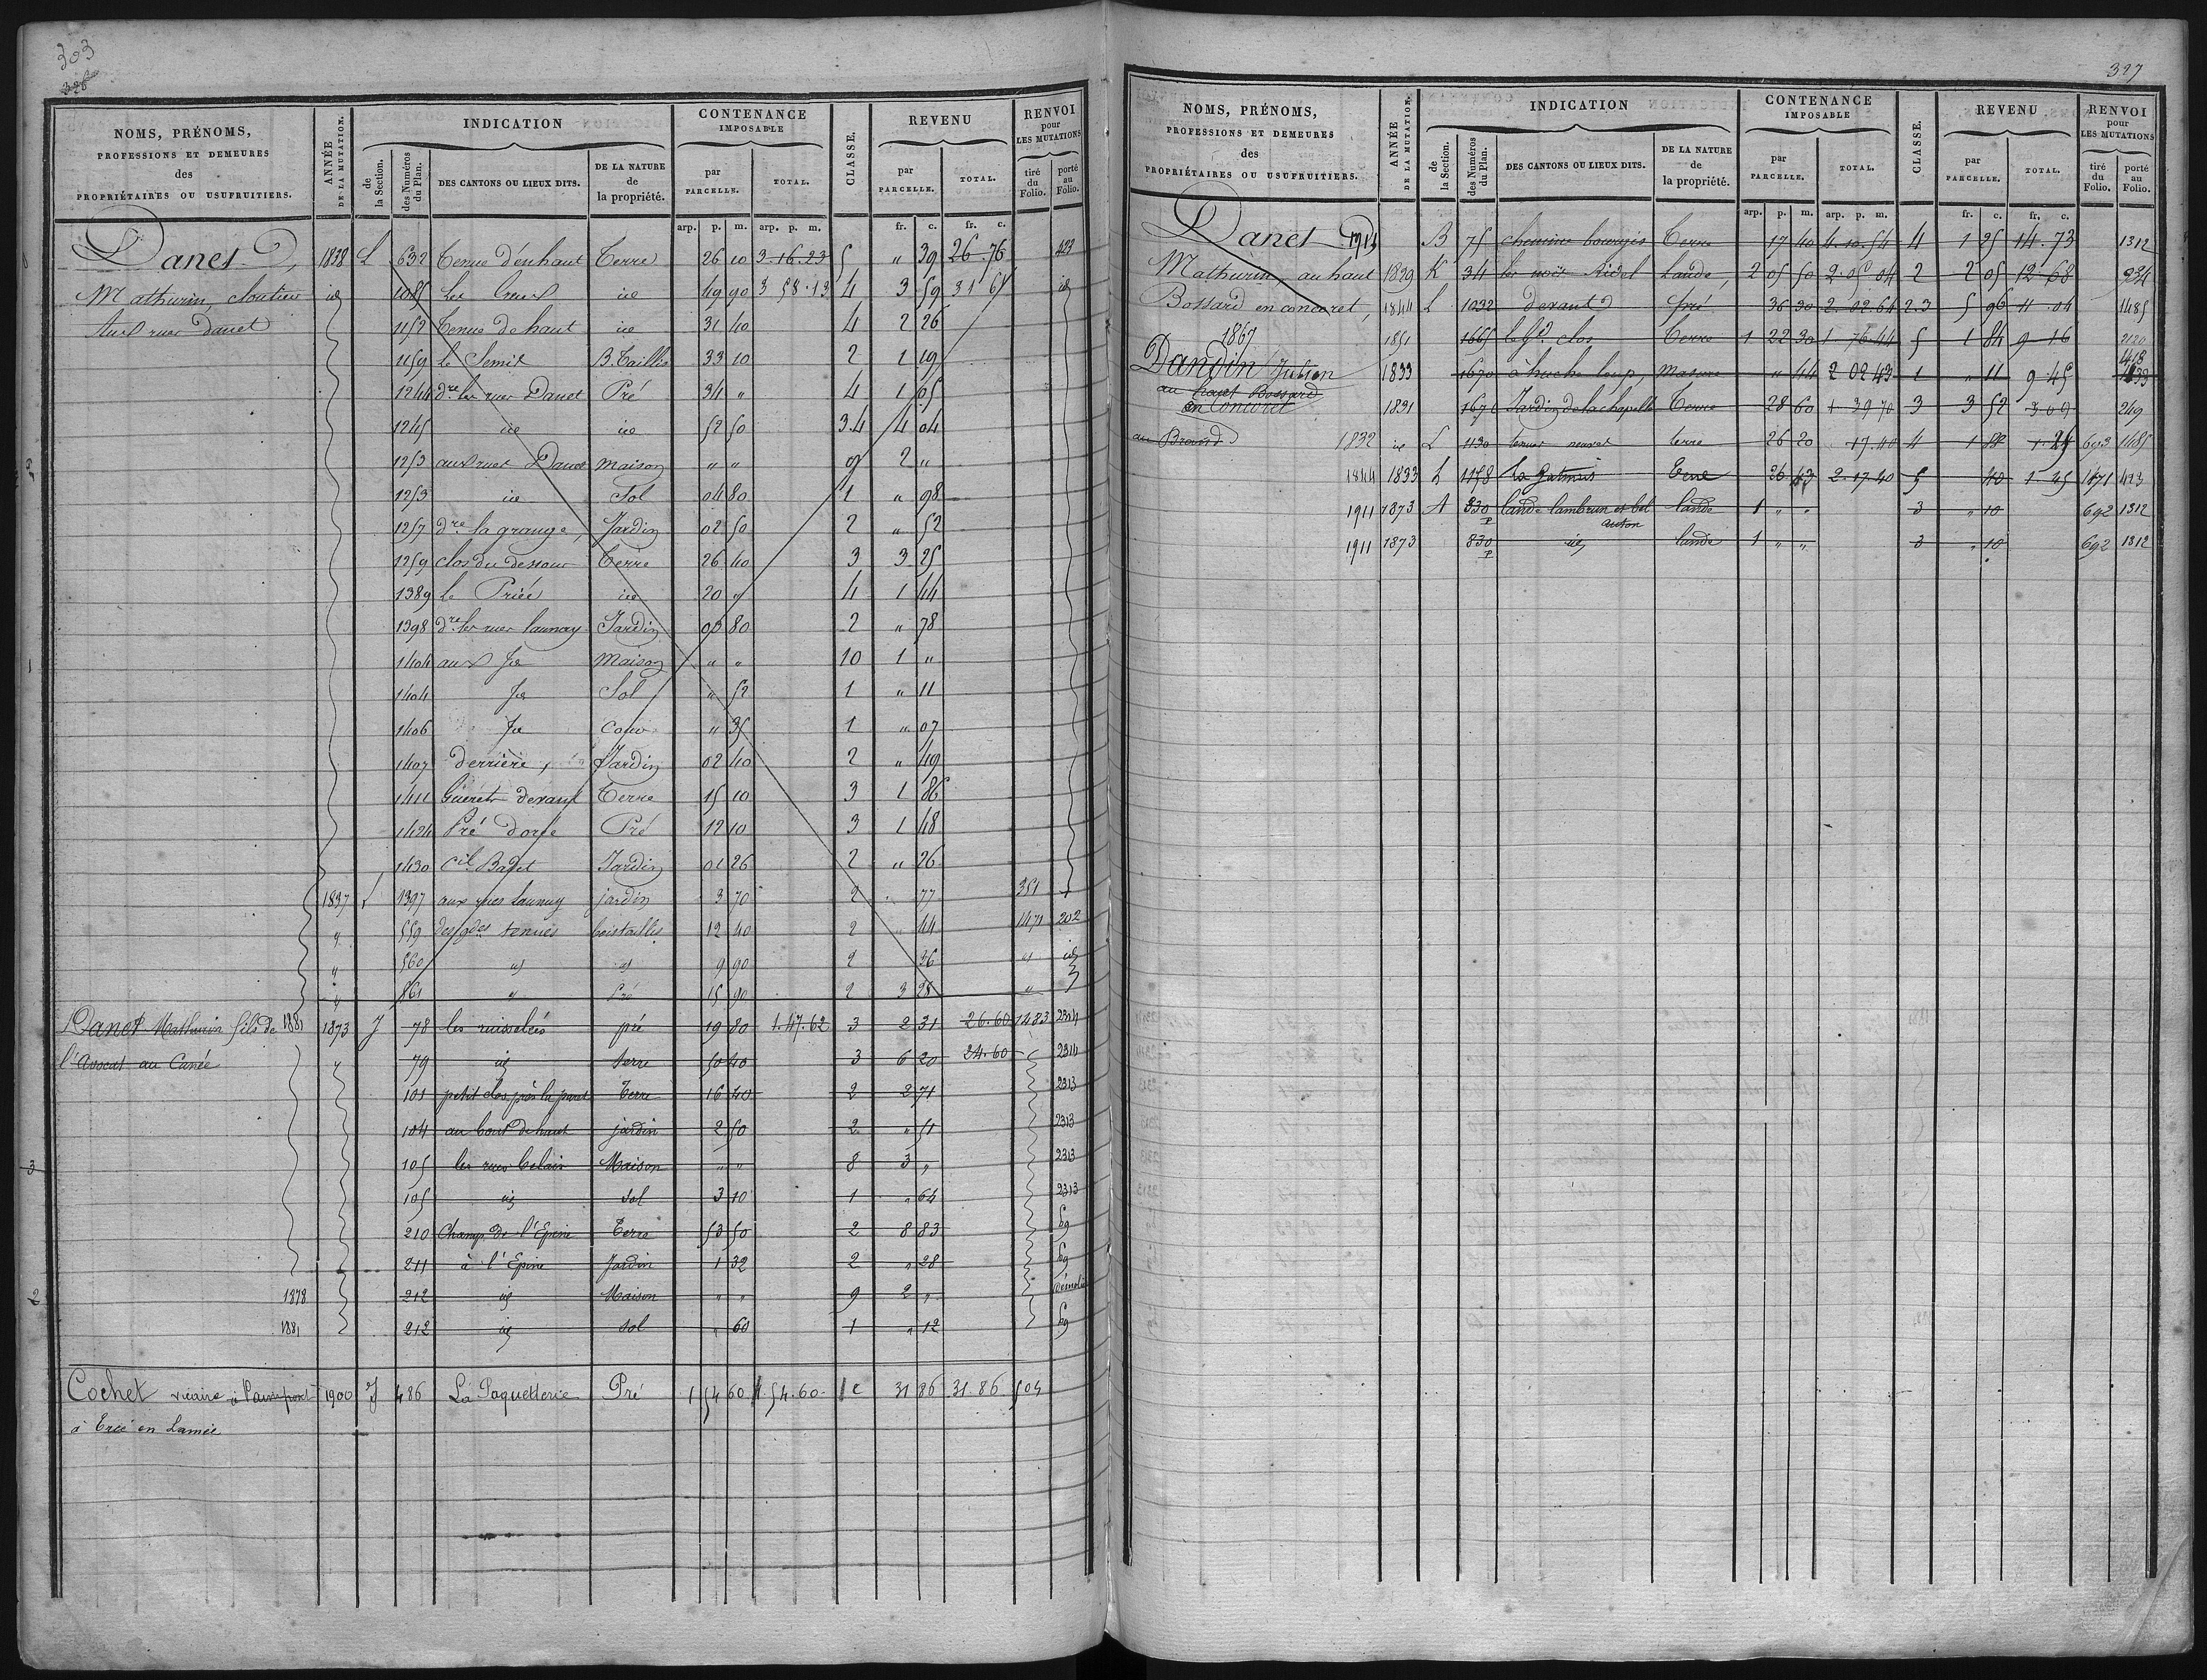 303
326
NOMS, PRÉNOMS, PROFESSIONS ET DEMEURES des PROPRIÉTAIRES OU USUFRUITIERS.
ANNÉE DE LA MUTATION.
INDICATION
de la Section.
des Numéros du Plan.
DES CANTONS OU LIEUX DITS.
DE LA NATURE de la propriété.
CONTENANCE IMPOSABLE
par PARCELLE.
TOTAL.
CLASSE.
REVENU
par PARCELLE.
TOTAL.
RENVOI pour LES MUTATIONS
tiré du Folio.
porté au Folio.
arp. p. m. arp. p. m. fr. c. fr. c.
Danet 1838 L 632 Tenue d'en haut Terre 26 10 3.16.23 5 " 39 26.76 423
Mathurin, cloutier id 1085 id 49 90 3 58.13 4 3 59 id
aux rues Danet 1152 Tenue de haut id 31 40 4 2 26
1159 le Semis B. Taillis 33 10 2 1 19
1244 dre les rues Danet Pré 34 " 4 1 65
1245 id id 52 50 3.4 4 04
1253 aux rues Danet Maison " " 9 2 "
1253 id Sol 04 80 1 " 98
1257 dre la grange, Jardin 02 50 2 " 52
1259 clos du dessous Terre 26 40 3 3 25
1389 le id 20 " 4 1 44
1398 dre les rues launay Jardin 03 80 2 " 78
1404 aux Maison " " 10 1 "
1404 Sol " 52 1 " 11
1406 " 35 1 " 07
1407 derrière, Jardin 02 40 2 " 49
1411 Guérets devant Terre 15 10 3 1 86
1424 Pré Pré 12 10 3 1 48
1430 Jardin 01 26 2 " 26
1837 L 1397 aux rues launay jardin 3 70 2 " 77 351
" 559 des gdes tenues bois taillis 12 40 2 " 44 1471 202
" 560 " " 9 90 2 36 " id
" 561 " Pré 15 90 2 3 28 "
Danet Mathurin fils de 1881 1873 J 78 les ruisselées pré 19 80 1.47.62 3 2 31 26.60 1483 2314
l'Avocat au Canée " 79 id terre 50 40 3 6 20 24.60 2314
101 petit clos près la Terre 16 40 2 2 71 2313
104 au bout de haut jardin 2 50 2 " 51 2313
105 les rues belair Maison " " 8 3 " 2313
105 id sol 3 10 1 " 64 2313
210 Champ de l'Epine Terre 53 50 2 8 83
211 à l'Epine Jardin 1 32 2 " 28
1878 212 id Maison " " 9 2 " Démolie
1881 212 id sol " 60 1 " 12
Cochet vicaire à Paimpont 1900 J 486 La Paquetterie Pré 1 54 60 1.54.60 1e 31 86 31.86 504
à Ercé en Lamée
327
NOMS, PRÉNOMS, PROFESSIONS ET DEMEURES des PROPRIÉTAIRES OU USUFRUITIERS.
ANNÉE DE LA MUTATION.
INDICATION
de la Section.
des Numéros du Plan.
DES CANTONS OU LIEUX DITS.
DE LA NATURE de la propriété.
CONTENANCE IMPOSABLE
par PARCELLE.
TOTAL.
CLASSE.
REVENU
par PARCELLE.
TOTAL.
RENVOI pour LES MUTATIONS
tiré du Folio.
porté au Folio.
arp. p. m. arp. p. m. fr. c. fr. c.
Danet 1914 B 75 chemins bourgeis Terre 17 40 4.10.54 4 1 25 14.73 1312
Mathurin, au haut 1839 K 34 les noës Lande 2 05 50 2.05.04 2 2 05 12.68 934
Bossard en concoret, 1844 L 1032 devant pré 36 30 2.02.64 2.3 5 96 11.04 1485
1867 1851 1665 le Gd clos Terre 1 22 30 1.76.44 5 1 84 9 16 2120
Dandin Julien 1833 1670 à huche loup, Masure " 44 2 02 43 1 " 11 9.45 418
au haut Bossard en Concoret 1831 1676 Jardin de la chapelle Terre 28 60 39 70 3 3 52 3 09 249
1832 id L 1130 terre 26 20 17.40 4 1 693 1485
1844 1833 L 1178 Terre 26 2.17.40 5 40 1.25 1471 423
1911 1873 A 830 p lande lambrun et bel lande 1 " " 3 " 10 692 1312
1911 1873 830 p id lande 1 " " 3 " 10 692 1312